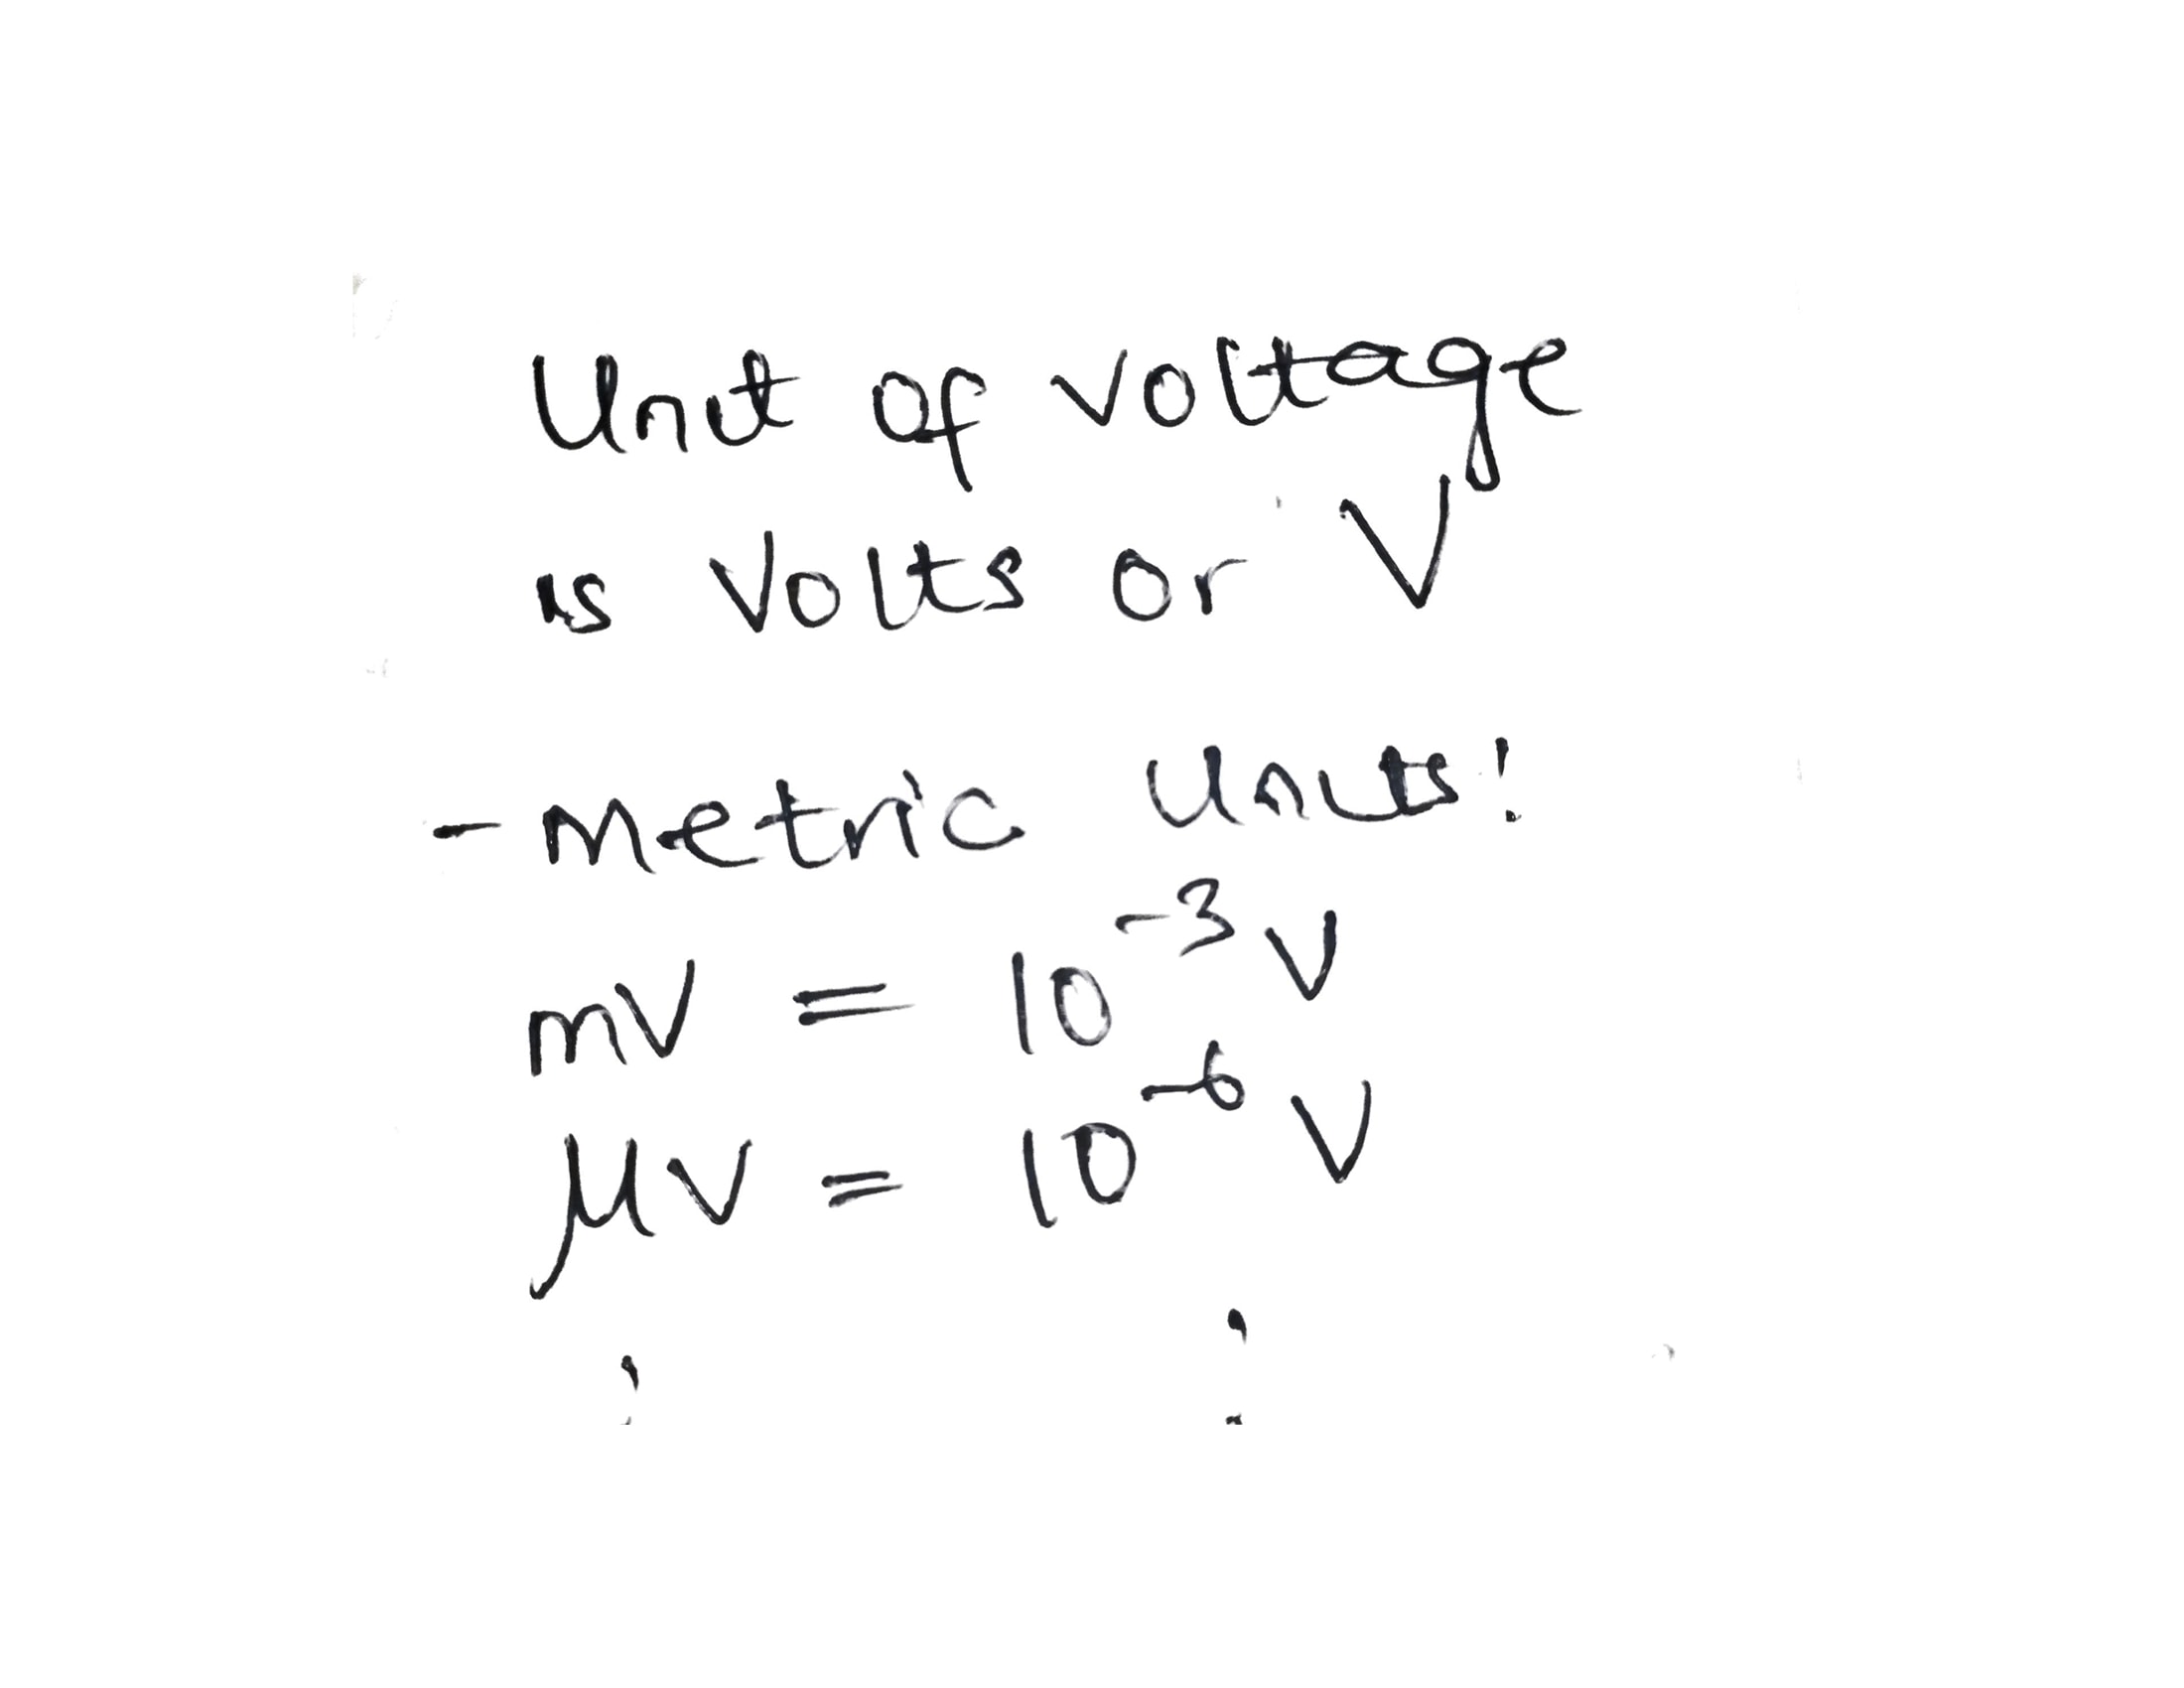 Unit of voltage
is Volts or V
- Metric Units!
mV = 10⁻³ V
μV = 10⁻⁶ V
⋮ ⋮